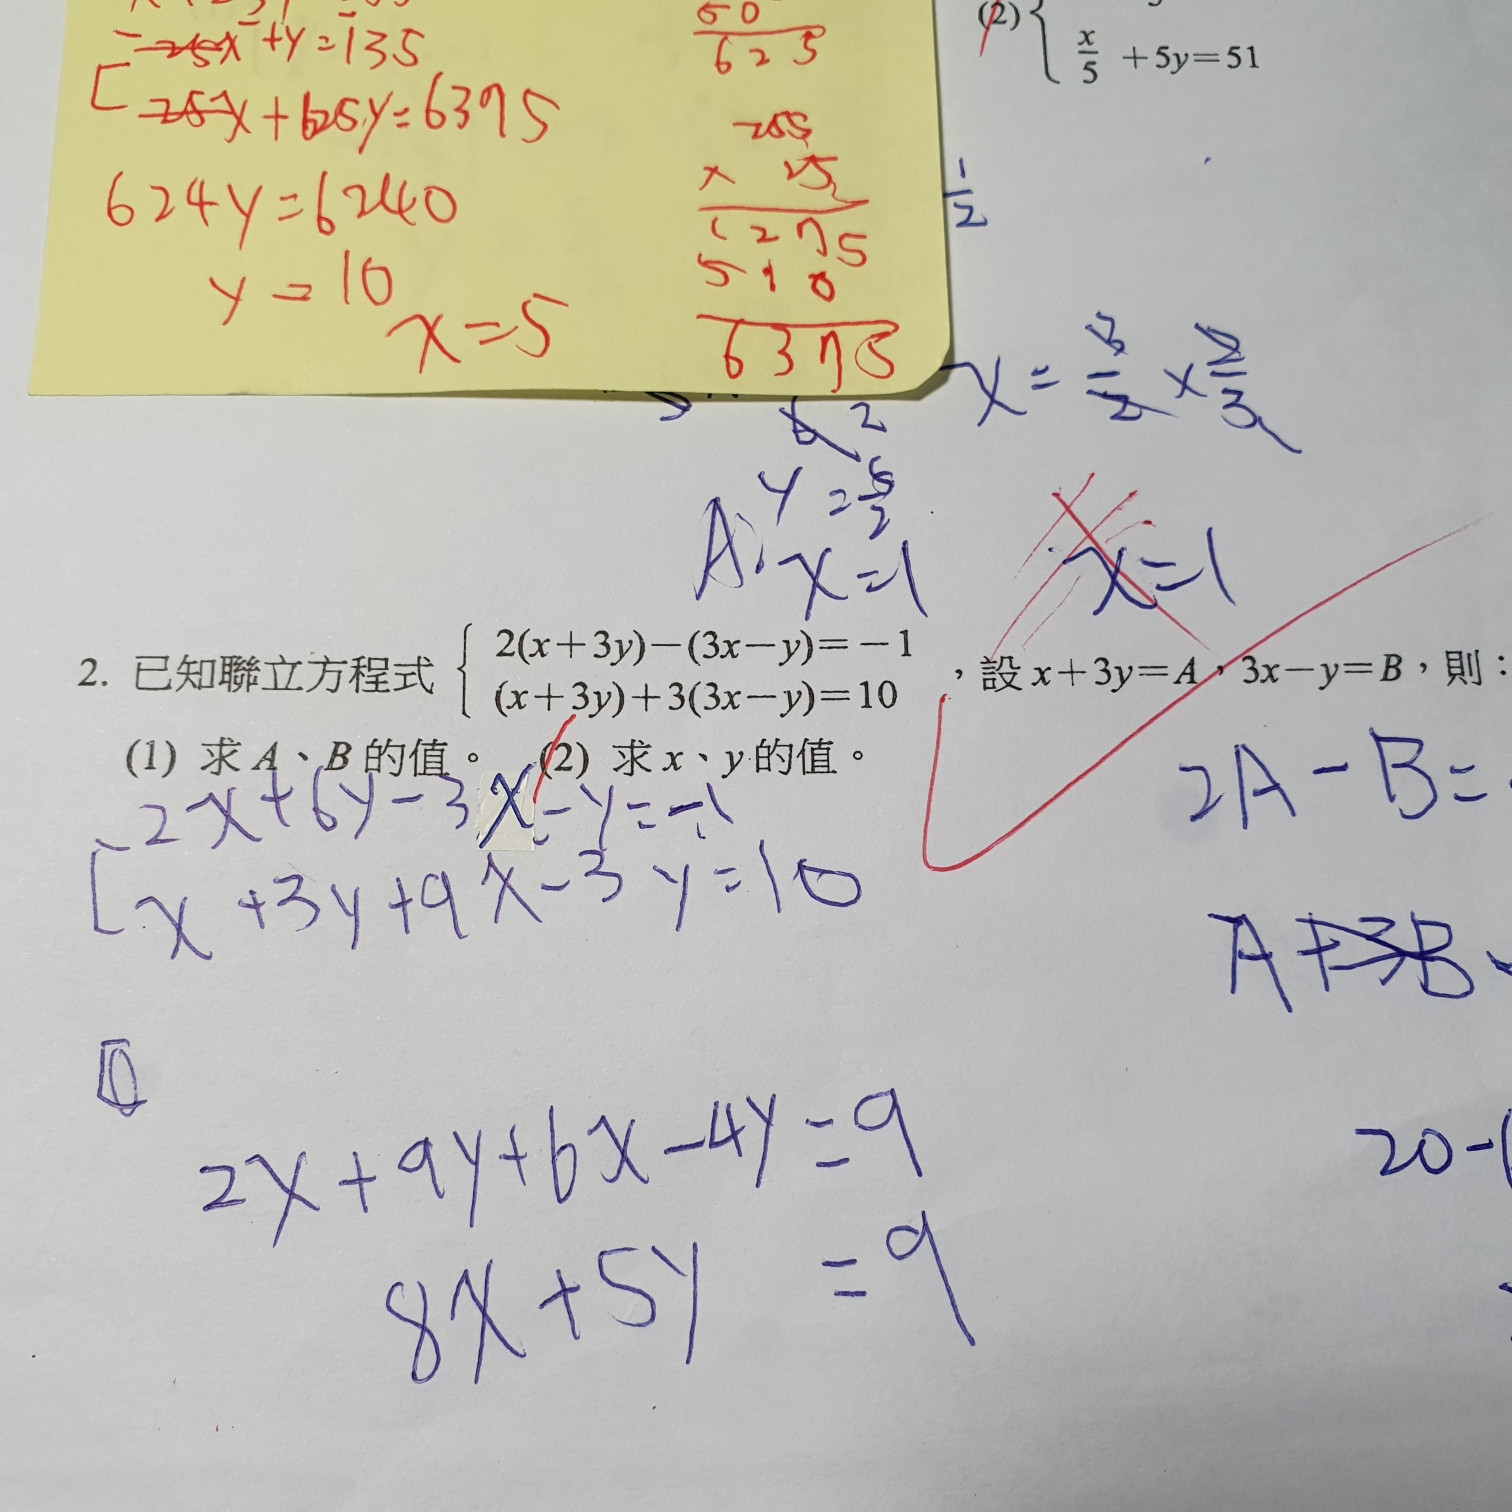 x+y=135
25x+625y=6375
624y=6240
y=10
x=5
50
625
255
× 25
1275
510
6375
(2)
x/5 +5y=51
1/2
x=3/2×2/3
6 2
y=5/2
A: x=1
x=1
2. 已知聯立方程式 { 2(x+3y)−(3x−y)=−1
(x+3y)+3(3x−y)=10 ,設 x+3y=A,3x−y=B,則:
(1) 求 A、B 的值。 (2) 求 x、y 的值。
2x+6y-3x-y=-1
x+3y+9x-3y=10
2A-B=
A+3B
2x+9y+6x-4y=9
20-
8x+5y =9